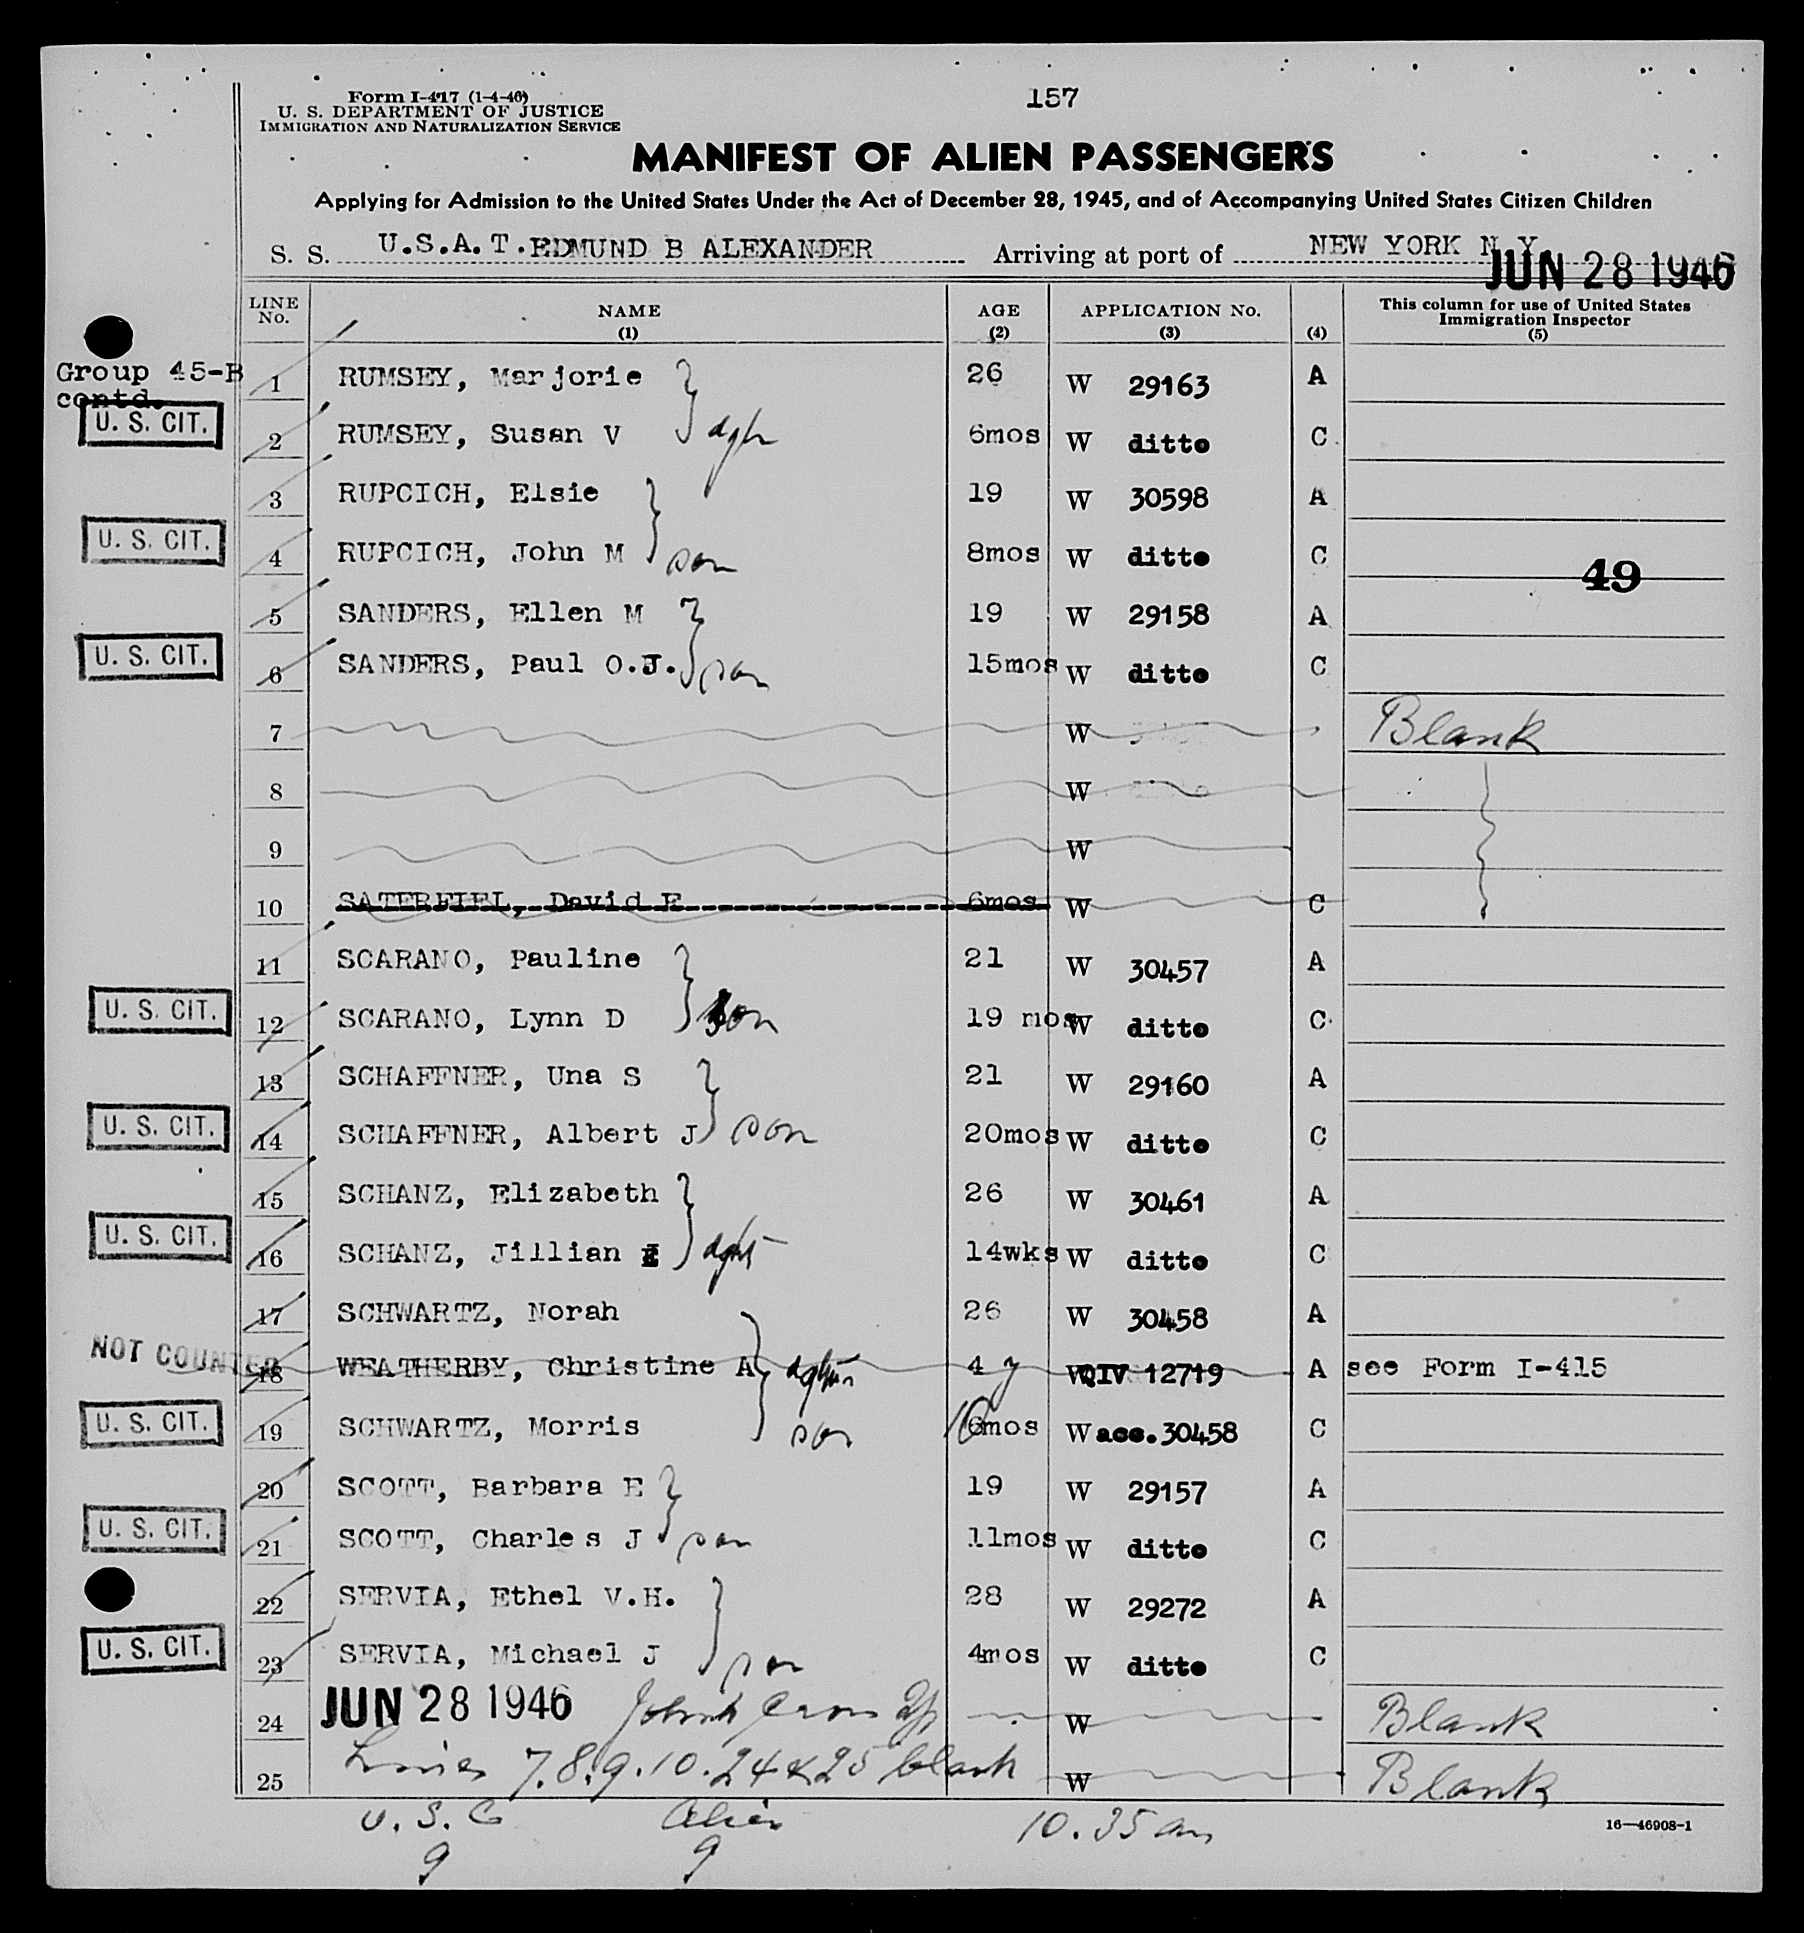 Form I-417 (1-4-46)
U. S. DEPARTMENT OF JUSTICE
IMMIGRATION AND NATURALIZATION SERVICE
157
MANIFEST OF ALIEN PASSENGERS
Applying for Admission to the United States Under the Act of December 28, 1945, and of Accompanying United States Citizen Children
S. S. U.S.A.T. EDMUND B ALEXANDER Arriving at port of NEW YORK N Y
JUN 28 1946
LINE No. NAME (1) AGE (2) APPLICATION No. (3) (4) This column for use of United States Immigration Inspector (5)
Group 45-B
contd.
1 RUMSEY, Marjorie 26 W 29163 A
U. S. CIT. 2 RUMSEY, Susan V dgtr 6mos W ditto C
3 RUPCICH, Elsie 19 W 30598 A
U. S. CIT. 4 RUPCICH, John M son 8mos W ditto C
49
5 SANDERS, Ellen M 19 W 29158 A
U. S. CIT. 6 SANDERS, Paul O.J. son 15mos W ditto C
7 W Blank
8 W
9 W
10 SATERFIEL, David E 6mos W C
11 SCARANO, Pauline 21 W 30457 A
U. S. CIT. 12 SCARANO, Lynn D son 19 mos W ditto C
13 SCHAFFNER, Una S 21 W 29160 A
U. S. CIT. 14 SCHAFFNER, Albert J son 20mos W ditto C
15 SCHANZ, Elizabeth 26 W 30461 A
U. S. CIT. 16 SCHANZ, Jillian dght 14wks W ditto C
17 SCHWARTZ, Norah 26 W 30458 A
NOT COUNTED 18 WEATHERBY, Christine A 4 y W QIV 12719 A see Form I-415
U. S. CIT. 19 SCHWARTZ, Morris son 10 6mos W acc. 30458 C
20 SCOTT, Barbara E 19 W 29157 A
U. S. CIT. 21 SCOTT, Charles J son 11mos W ditto C
22 SERVIA, Ethel V.H. 28 W 29272 A
U. S. CIT. 23 SERVIA, Michael J son 4mos W ditto C
24 JUN 28 1946 W Blank
25 Lines 7.8.9.10.24 & 25 blank W Blank
U.S.C Alien 10.35 am
9 9
16—46908-1